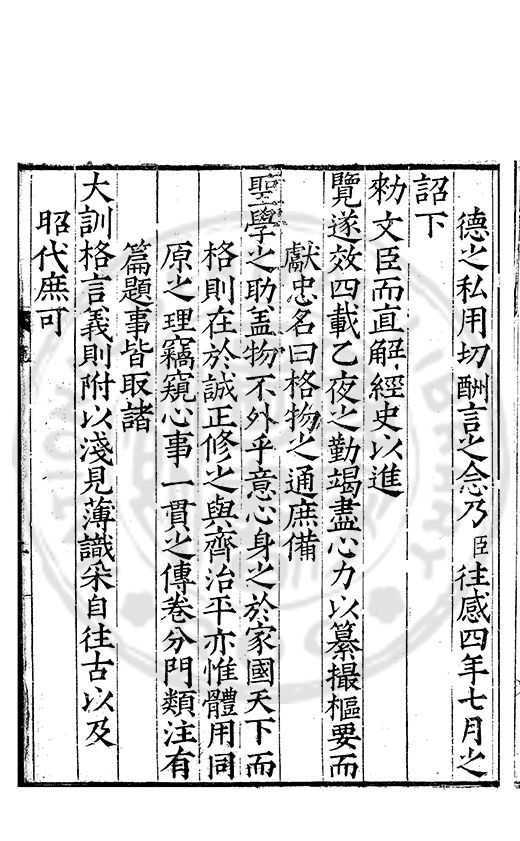 德之私用切酬言之念乃臣往感四年七月之
詔下
勑文臣而直解經史以進
覽遂效四載乙夜之勤竭盡心力以纂撮樞要而
獻忠名曰格物之通庶備
聖學之助盖物不外乎意心身之於家國天下而
格則在於誠正修之與齊治平亦惟體用同
原之理竊窺心事一貫之傳卷分門類注有
篇題事皆取諸
大訓格言義則附以淺見薄識采自往古以及
昭代庶可